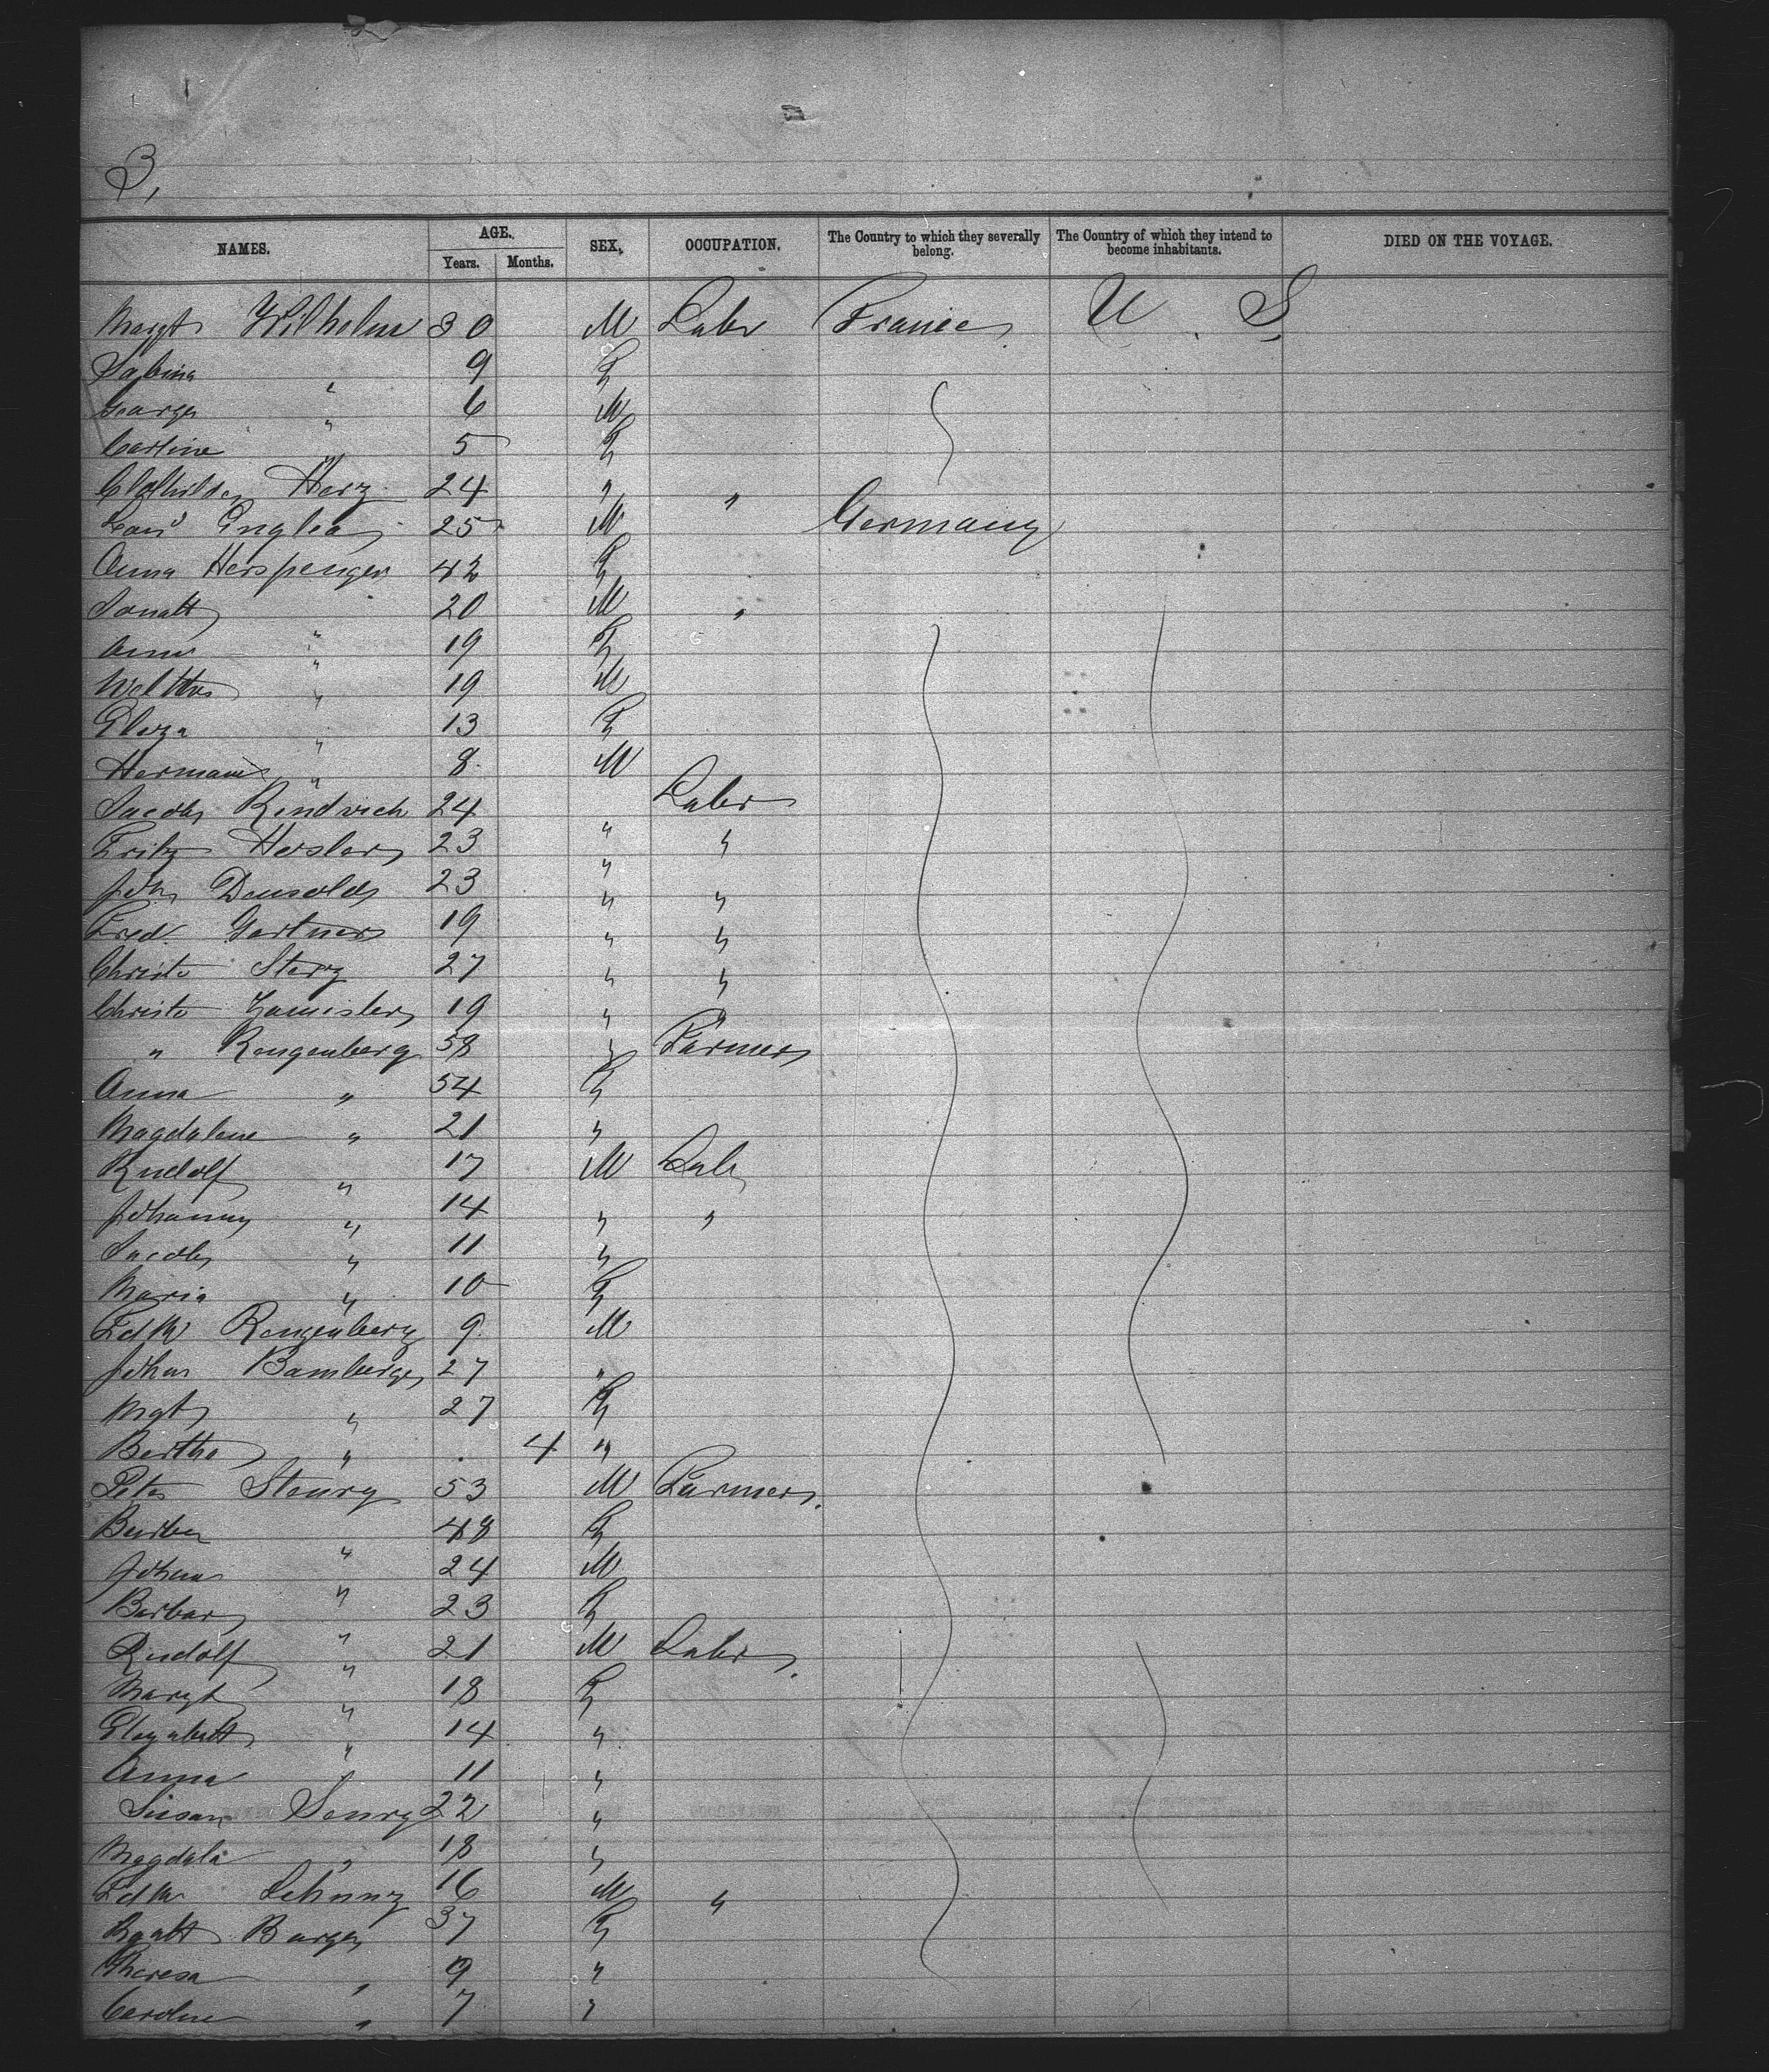 3,
NAMES. AGE. Years. Months. SEX. OCCUPATION. The Country to which they severally belong. The Country of which they intend to become inhabitants. DIED ON THE VOYAGE.
Margt Wilhelm 30 M Labr France U. S.
Sabina " 9 F
George " 6 M
Carline " 5 F
Clothilde Herz 24 " "
Engler 25 M Germany
Anna Herspenger 42 F
20 M "
Anna " 19 F
Walther " 19 M
Eleza " 13 F
Hermann " 8 M
Jacob Rindrich 24 " Labr
Fritz Hesler 23 " "
John Densold 23 " "
Fred. Gartner 19 " "
Christo Sterz 27 " "
Christo 19 " "
" Rengenberg 58 " Farmer
Anna " 54 F
Magdalene " 21 "
Rudolf " 17 M Lab
Johanny " 14 " "
Jacob " 11 "
Maria " 10 F
Fdk Rengenberg 9 M
Johan Bamberger 27 "
Mgt " 27 F
Bertha " 4 "
Peter Steury 53 M Farmer.
Barber " 48 F
Johan " 24 M
Barbar " 23 F
Rudolf " 21 M Labr.
Margt " 18 F
Elezabett " 14 "
Anna " 11 "
Susan Seury 22 "
Magdala " 18 "
Fdk 16 M "
Burger 37 F
Theresa " 9 "
Caroline " 7 "